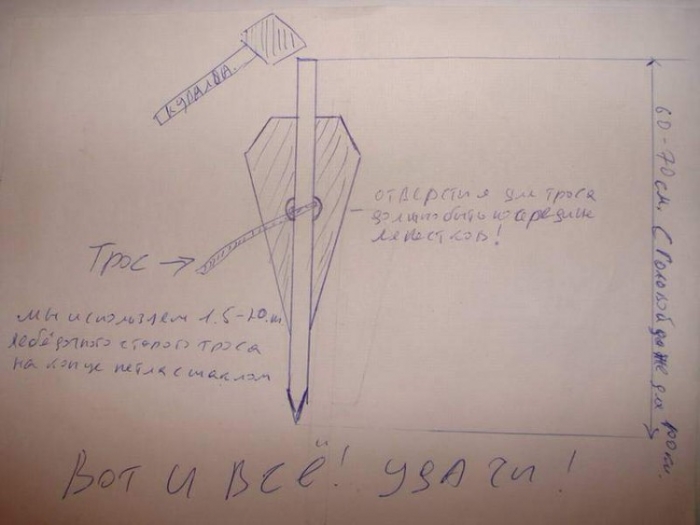 КУВАЛДА.
отверстия для троса
должно быть посередине
лепестков!
Трос
мы используем 1.5-2.0 m
лебёдочного старого троса
на конце петля с шаклом
60-70 см. С головой даже для
Вот и всё! удачи!